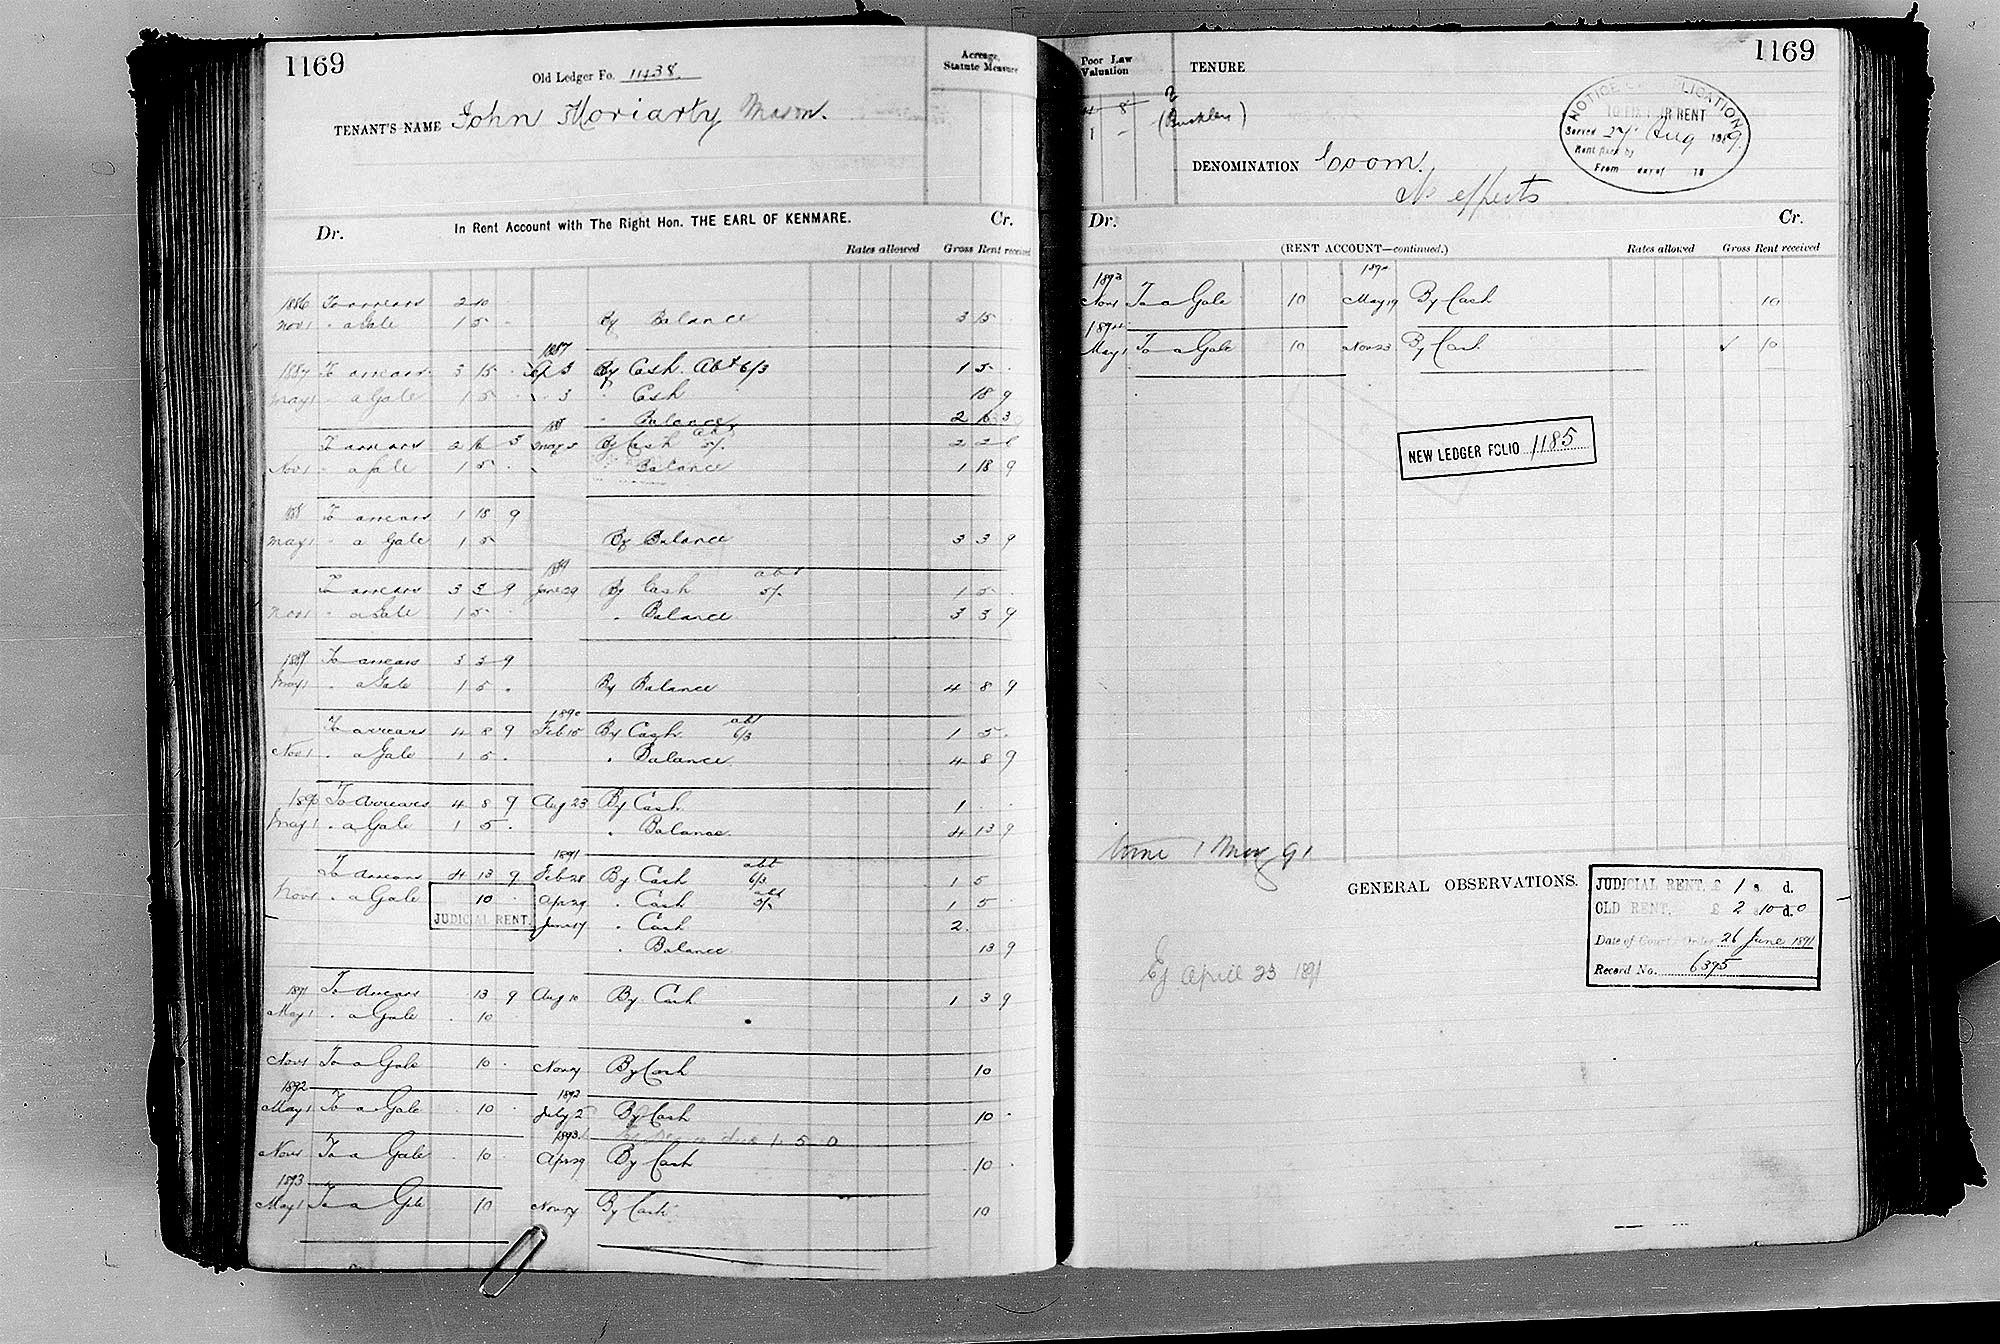 1169
Old Ledger Fo. 11438
Acreage, Statute Measure
TENANT'S NAME John Moriarty Mason.
In Rent Account with The Right Hon. THE EARL OF KENMARE.
Dr. Cr.
Rates allowed Gross Rent received
1886 To arrears 2 10
Nov 1 " a Gale 1 5 - By Balance 3 15
1887
1887 To arrears 3 15 - Sep 3 By Cash Abt 6/3 1 5 -
May 1 " a Gale 1 5 - " 3 " Cash 18 9
" Balance 2 16 3
To arrears 2 16 3 May 5 By Cash abt 5/- 2 2 6
Nov 1 " a Gale 1 5 - " Balance 1 18 9
188 To arrears 1 18 9
May 1 " a Gale 1 5 By Balance 3 3 9
1889
To arrears 3 3 9 June 29 By Cash abt 5/- 1 5 -
Nov 1 " a Gale 1 5 " Balance 3 3 9
1889 To arrears 3 3 9
May 1 " a Gale 1 5 - By Balance 4 8 9
1890
To arrears 4 8 9 Feb 15 By Cash abt 6/3 1 5 -
Nov 1 " a Gale 1 5 - " Balance 4 8 9
1890 To Arrears 4 8 9 Aug 23 By Cash 1 - -
May 1 " a Gale 1 5 - " Balance 4 13 9
1891
To Arrears 4 13 9 Feb 28 By Cash abt 6/3 1 5
Nov 1 " a Gale 10 - Apr 29 " Cash abt 5/- 1 5 -
JUDICIAL RENT. June 17 " Cash 2 -
" Balance 13 9
1891 To Arrears 13 9 Aug 10 By Cash 1 3 9
May 1 " a Gale 10
Nov 1 To a Gale 10 - Nov 7 By Cash 10
1892 1892
May 1 To a Gale 10 - July 2 By Cash 10 -
1893 due 1 5 0
Nov 1 To a Gale 10 Apr 29 By Cash 10 -
1893
May 1 To a Gale 10 Nov 17 By Cash 10
1169
Poor Law Valuation
TENURE
4 8
1 -
2
NOTICE OF APPLICATION
TO FIX FAIR RENT
Served 27 Aug 1889
Rent fixed by
From day of 18
DENOMINATION Coom.
No effects
Dr. Cr.
(RENT ACCOUNT—continued.) Rates allowed Gross Rent received
1893 1894
Nov 1 To a Gale 10 May 19 By Cash 10
1894
May 1 To a Gale 10 Nov 23 By Cash ✓ 10
NEW LEDGER FOLIO 1185
1 May 91
GENERAL OBSERVATIONS.
JUDICIAL RENT, £ 1 s. d.
OLD RENT, £ 2 s. 10 d. 0
Date of Court's Order 26 June 1891
Record No. 6395
Ej April 23 1891